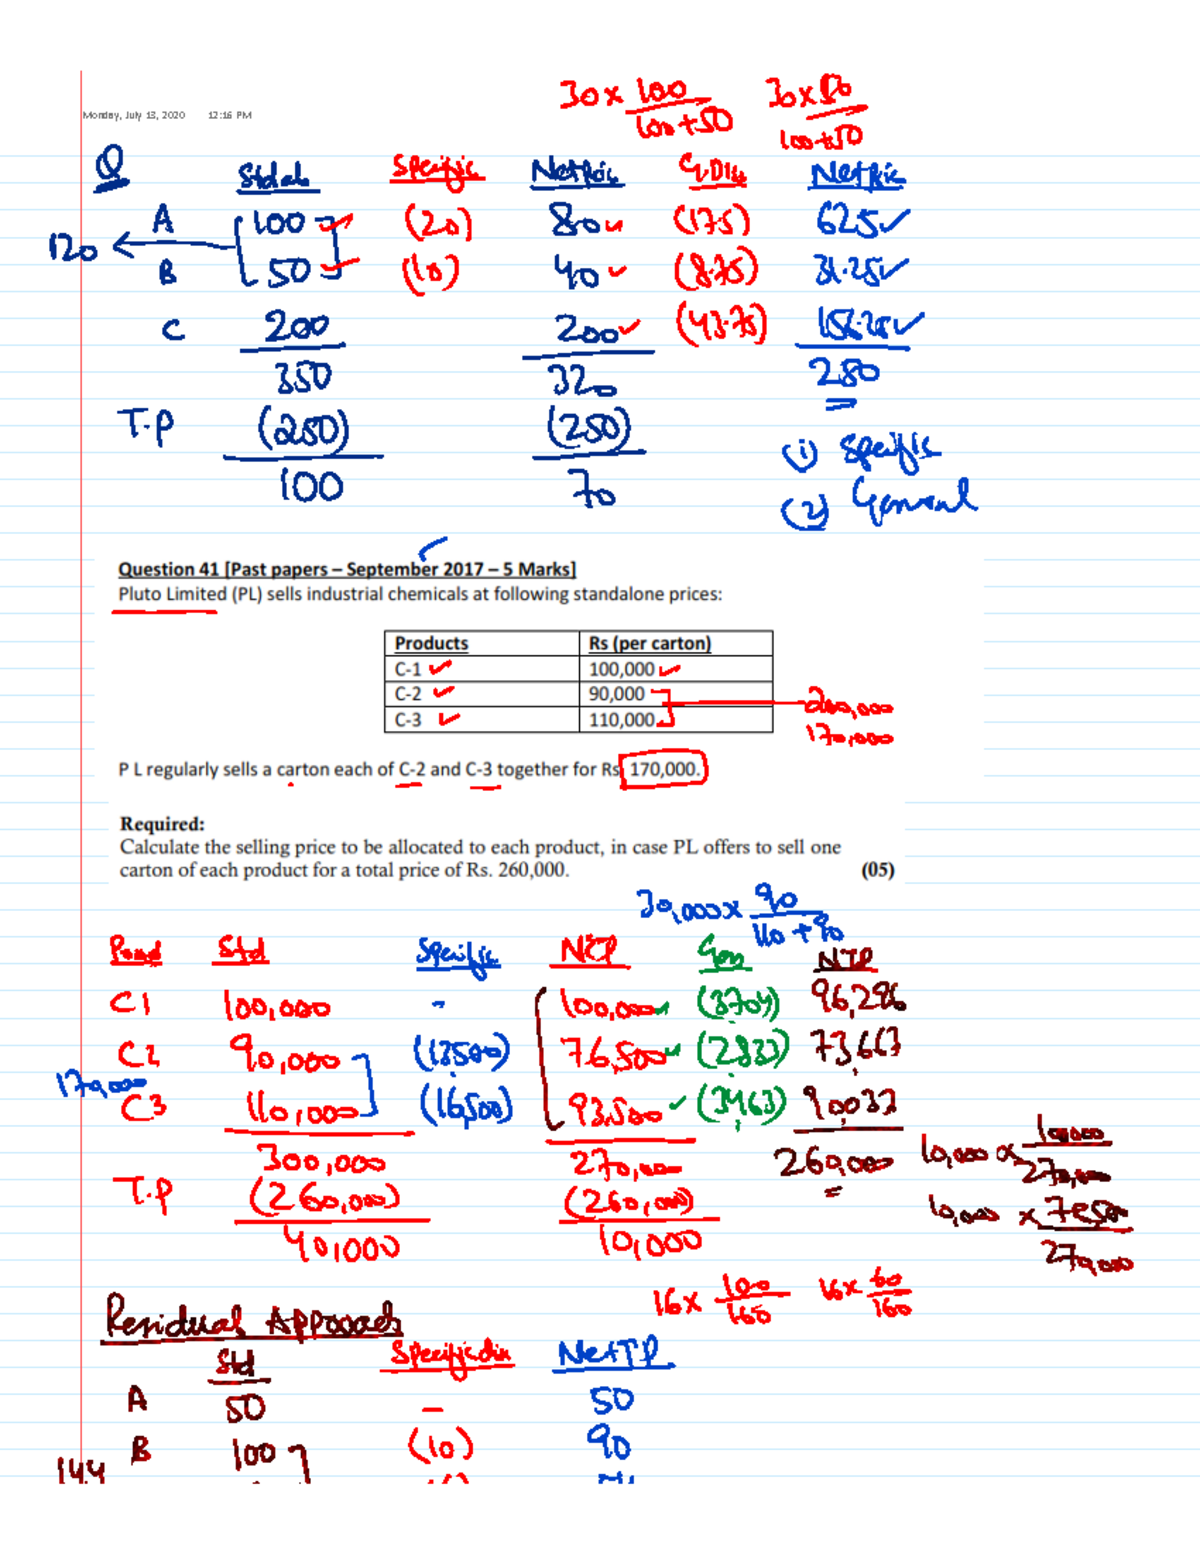 Monday, July 13, 2020 12:16 PM
30 x 100 / 100+50 30 x 50 / 100+50
Q Std al Specific Net Price G.Dis Net Price
A 100 (20) 80 (17.5) 62.5
120
B 50 (10) 40 (8.75) 31.25
C 200 200 (43.75) 156.25
350 320 250
T.P (250) (250)
100 70
(i) Specific
(2) General
Question 41 [Past papers – September 2017 – 5 Marks]
Pluto Limited (PL) sells industrial chemicals at following standalone prices:
Products Rs (per carton)
C-1 100,000
C-2 90,000
C-3 110,000
200,000
170,000
P L regularly sells a carton each of C-2 and C-3 together for Rs. 170,000.
Required:
Calculate the selling price to be allocated to each product, in case PL offers to sell one
carton of each product for a total price of Rs. 260,000. (05)
30,000 x 90 / 110 + 90
Prod Std Specific NTP Gen NTP
C1 100,000 - 100,000 (3704) 96,296
C2 90,000 (13500) 76,500 (2833) 73,667
170,000
C3 110,000 (16,500) 93,500 (3463) 90037
300,000 270,000 260,000
10,000 x 100000 / 270,000
T.P (260,000) (260,000)
10,000 x 76500 / 270,000
40,000 10,000
16 x 100 / 160 16 x 60 / 160
Residual Approach
Std Specific dis Net TP
A 50 - 50
B 100 (10) 90
144